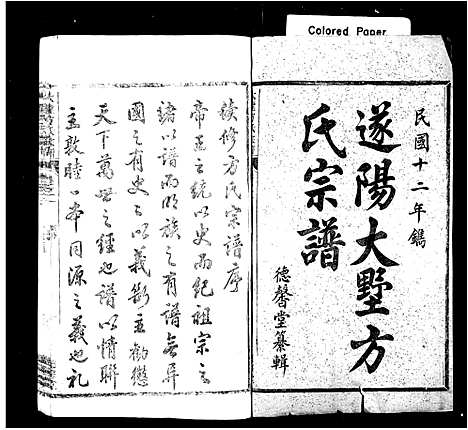 Colored Paper
民國十二年鐫
遂陽大墅方
氏宗譜
德馨堂纂輯
續修方氏宗譜序
帝王之統以史而紀祖宗之
緒以譜而昭族之有譜無異
國之有史也史以義斷主勸懲
天下萬世之經也譜以情聯
主敦睦一本同源之義也禮